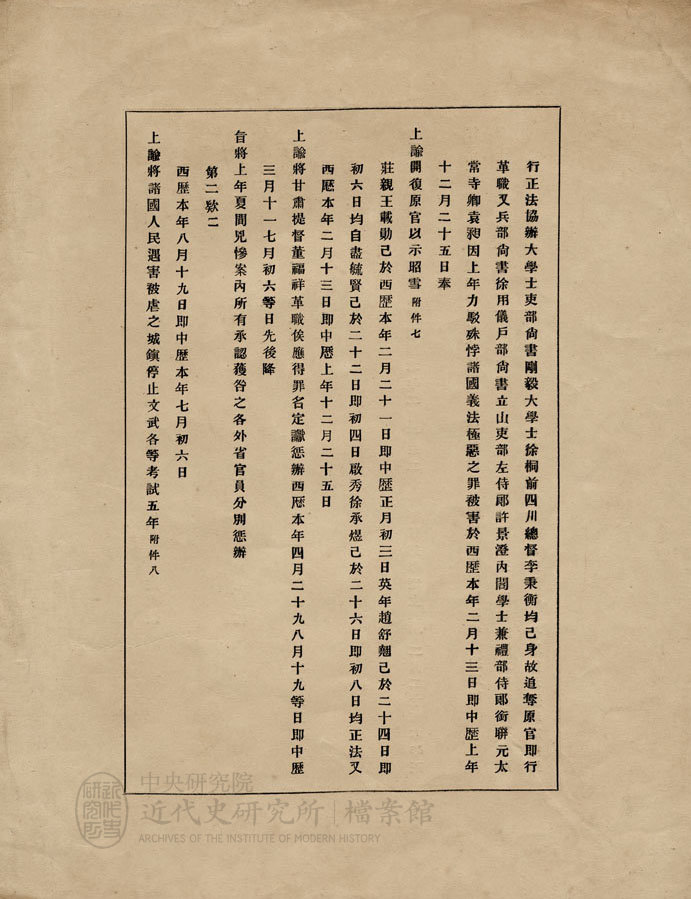 行正法協辦大學士吏部尙書剛毅大學士徐桐前四川總督李秉衡均已身故追奪原官即行
革職又兵部尙書徐用儀戶部尙書立山吏部左侍郞許景澄內閣學士兼禮部侍郞銜聯元太
常寺卿袁昶因上年力駁殊悖諸國義法極惡之罪被害於西歷本年二月十三日即中歷上年
十二月二十五日奉
上諭開復原官以示昭雪附件七
莊親王載勛己於西歷本年二月二十一日即中歷正月初三日英年趙舒翹己於二十四日即
初六日均自盡毓賢己於二十二日即初四日啟秀徐承煜己於二十六日即初八日均正法又
西歷本年二月十三日即中歷上年十二月二十五日
上諭將甘肅提督董福祥革職俟應得罪名定讞懲辦西歷本年四月二十九八月十九等日即中歷
三月十一七月初六等日先後降
旨將上年夏間兇慘案內所有承認獲咎之各外省官員分別懲辦
第二欵二
西歷本年八月十九日即中歷本年七月初六日
上諭將諸國人民遇害被虐之城鎭停止文武各等考試五年附件八
中央研究院
近代史研究所 檔案館
ARCHIVES OF THE INSTITUTE OF MODERN HISTORY